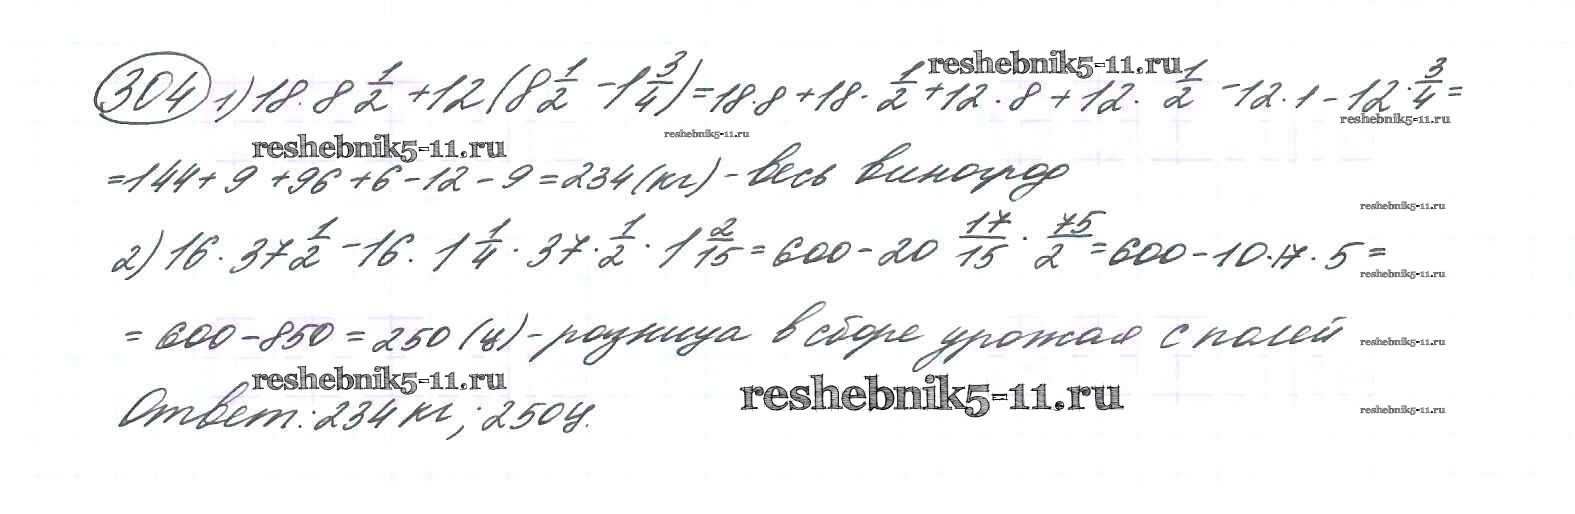 304 1) 18 · 8 1/2 + 12 (8 1/2 − 1 3/4) = 18 · 8 + 18 · 1/2 + 12 · 8 + 12 · 1/2 − 12 · 1 − 12 · 3/4 =
reshebnik5-11.ru
reshebnik5-11.ru
reshebnik5-11.ru
reshebnik5-11.ru
= 144 + 9 + 96 + 6 − 12 − 9 = 234 (кг) − весь виноград
reshebnik5-11.ru
2) 16 · 37 1/2 − 16 · 1 1/4 · 37 · 1/2 · 1 2/15 = 600 − 20 17/15 · 75/2 = 600 − 10 · 17 · 5 =
reshebnik5-11.ru
= 600 − 850 = 250 (ц) − разница в сборе урожая с полей
reshebnik5-11.ru
reshebnik5-11.ru
reshebnik5-11.ru
Ответ: 234 кг; 250 ц.
reshebnik5-11.ru